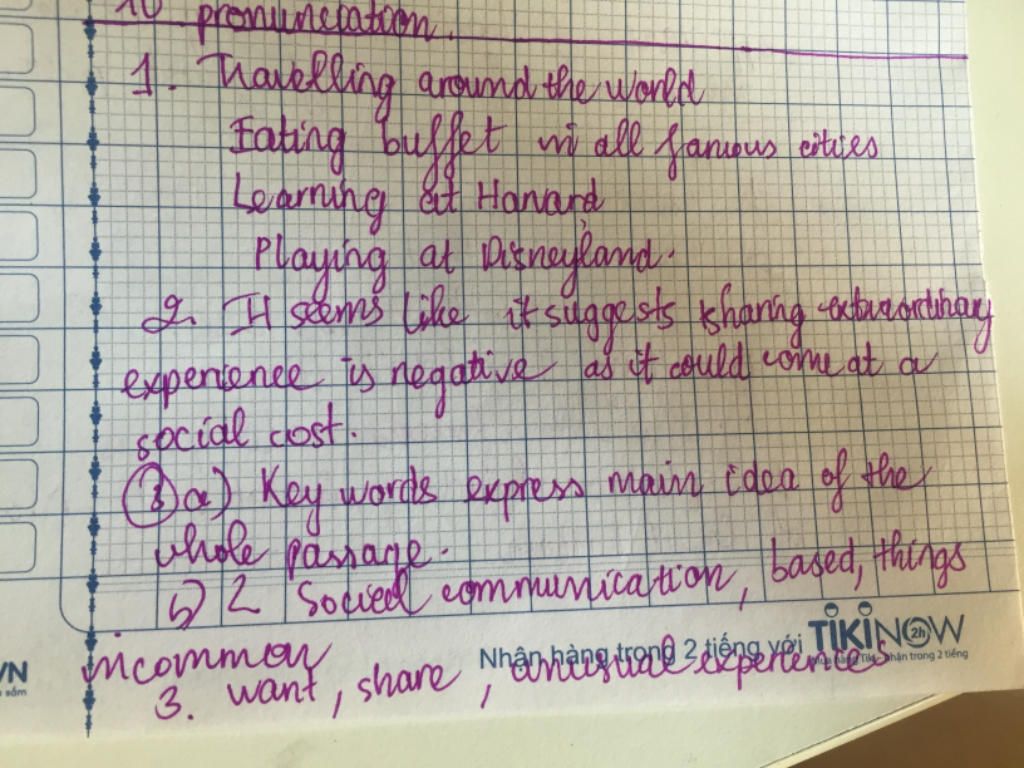 10 pronunciation.
1. Travelling around the world
Eating buffet in all famous cities
Learning at Harvard
Playing at Disneyland.
2. It seems like it suggests sharing extraordinary
experience is negative as it could come at a
social cost.
3 a) Key words express main idea of the
whole passage.
b) 2 Social communication, based, things
VN
in common
Nhận hàng trong 2 tiếng với TIKINOW 2h
sắm
Mua hàng Tiki, nhận trong 2 tiếng
3. want, share, unusual experiences